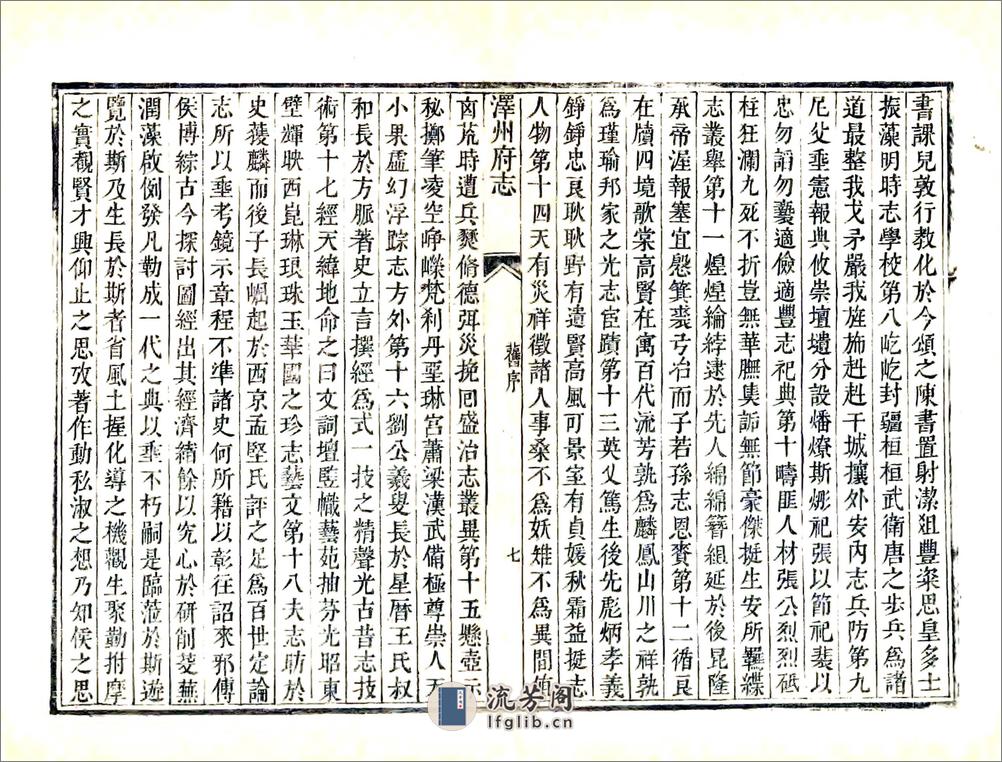 書課兒敦行教化於今頌之陳書置射潔俎豐粢思皇多士
振藻明時志學校第八屹屹封疆桓桓武衛唐之步兵爲諸
道最整我戈矛嚴我旌斾赳赳干城攘外安内志兵防第九
尼父垂憲報典攸崇壇壝分設燔燎斯彫祀張以節祀裴以
忠勿謟勿䙝適儉適豐志祀典第十疇匪人材張公烈烈砥
柱狂瀾九死不折豈無華膴臭誗無節豪傑挺生安所羈緤
志叢舉第十一煌煌綸綍逮於先人綿綿簪組延於後昆隆
承帝渥報塞宜慇箕裘弓冶而子若孫志恩賚第十二循良
在牘四境歌棠高賢在寓百代流芳孰爲麟鳳山川之祥孰
爲瑾瑜邦家之光志宦蹟第十三英父篤生後先彪炳孝義
錚錚忠良耿耿野有遺賢高風可景室有貞媛秋霜益挺志
人物第十四天有災祥徵諸人事桑不爲妖雉不爲異間值
澤州府志
舊序
七
㐫荒時遺兵燹脩德弭災挽回盛治志叢異第十五懸壺示
秘擲筆凌空崢嶸梵刹丹堊琳宮蕭梁漢武備極尊崇人天
小果虛幻浮踪志方外第十六劉公義叟長於星曆王氏叔
和長於方脈著史立言撰經爲式一技之精聲光古昔志技
術第十七經天緯地命之曰文詞壇竪幟藝苑抽芬光昭東
壁輝映西崑琳琅珠玉華國之珍志藝文第十八夫志昉於
史獲麟而後子長崛起於西京孟堅氏評之足爲百世定論
志所以垂考鏡示章程不準諸史何所藉以彰往詔來邪傅
侯博綜古今探討圖經出其經濟緒餘以究心於硏削芟蕪
潤藻啟例發凡勒成一代之典以垂不朽嗣是臨蒞於斯遊
覽於斯及生長於斯者省風土握化導之機觀生聚勤拊摩
之實觀賢才興仰止之思攷著作動私淑之想乃知侯之思
流芳阁
lfglib.cn